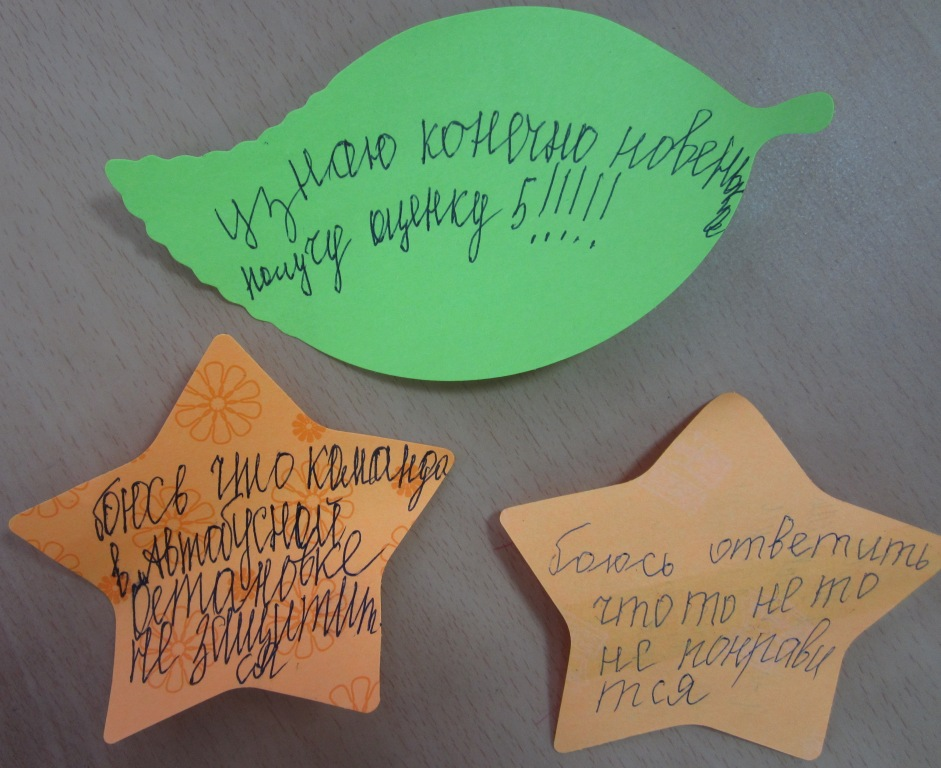 узнаю конечно новенькое
получу оценку 5!!!!!
боюсь что команда
в "Автобусной
остановке
не защитит
ся
боюсь ответить
что то не то
не понрави
тся